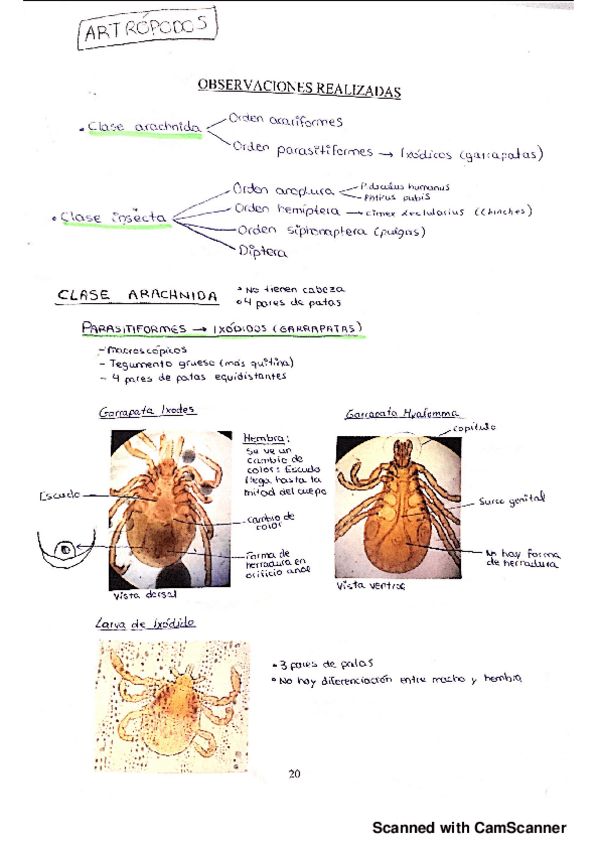 ARTRÓPODOS
OBSERVACIONES REALIZADAS
• Clase arachnida
Orden acariformes
Orden parasitiformes → Ixódicos (garrapatas)
• Clase insecta
Orden anoplura
Pdiculus humanus
Phtirus pubis
Orden hemiptera → cimex lectularius (chinches)
Orden siphonaptera (pulgas)
Diptera
CLASE ARACHNIDA
• No tienen cabeza
• 4 pares de patas
PARASITIFORMES → IXÓDIDOS (GARRAPATAS)
- Macroscópicos
- Tegumento grueso (más quitina)
- 4 pares de patas equidistantes
Garrapata Ixodes
Hembra:
Se ve un
cambio de
color: Escudo
llega hasta la
mitad del cuerpo
Escudo
cambio de
color
Forma de
herradura en
orificio anal
Vista dorsal
Garrapata Hyalomma
capítulo
Surco genital
No hay forma
de herradura
Vista ventral
Larva de Ixódido
• 3 pares de patas
• No hay diferenciación entre macho y hembra
20
Scanned with CamScanner